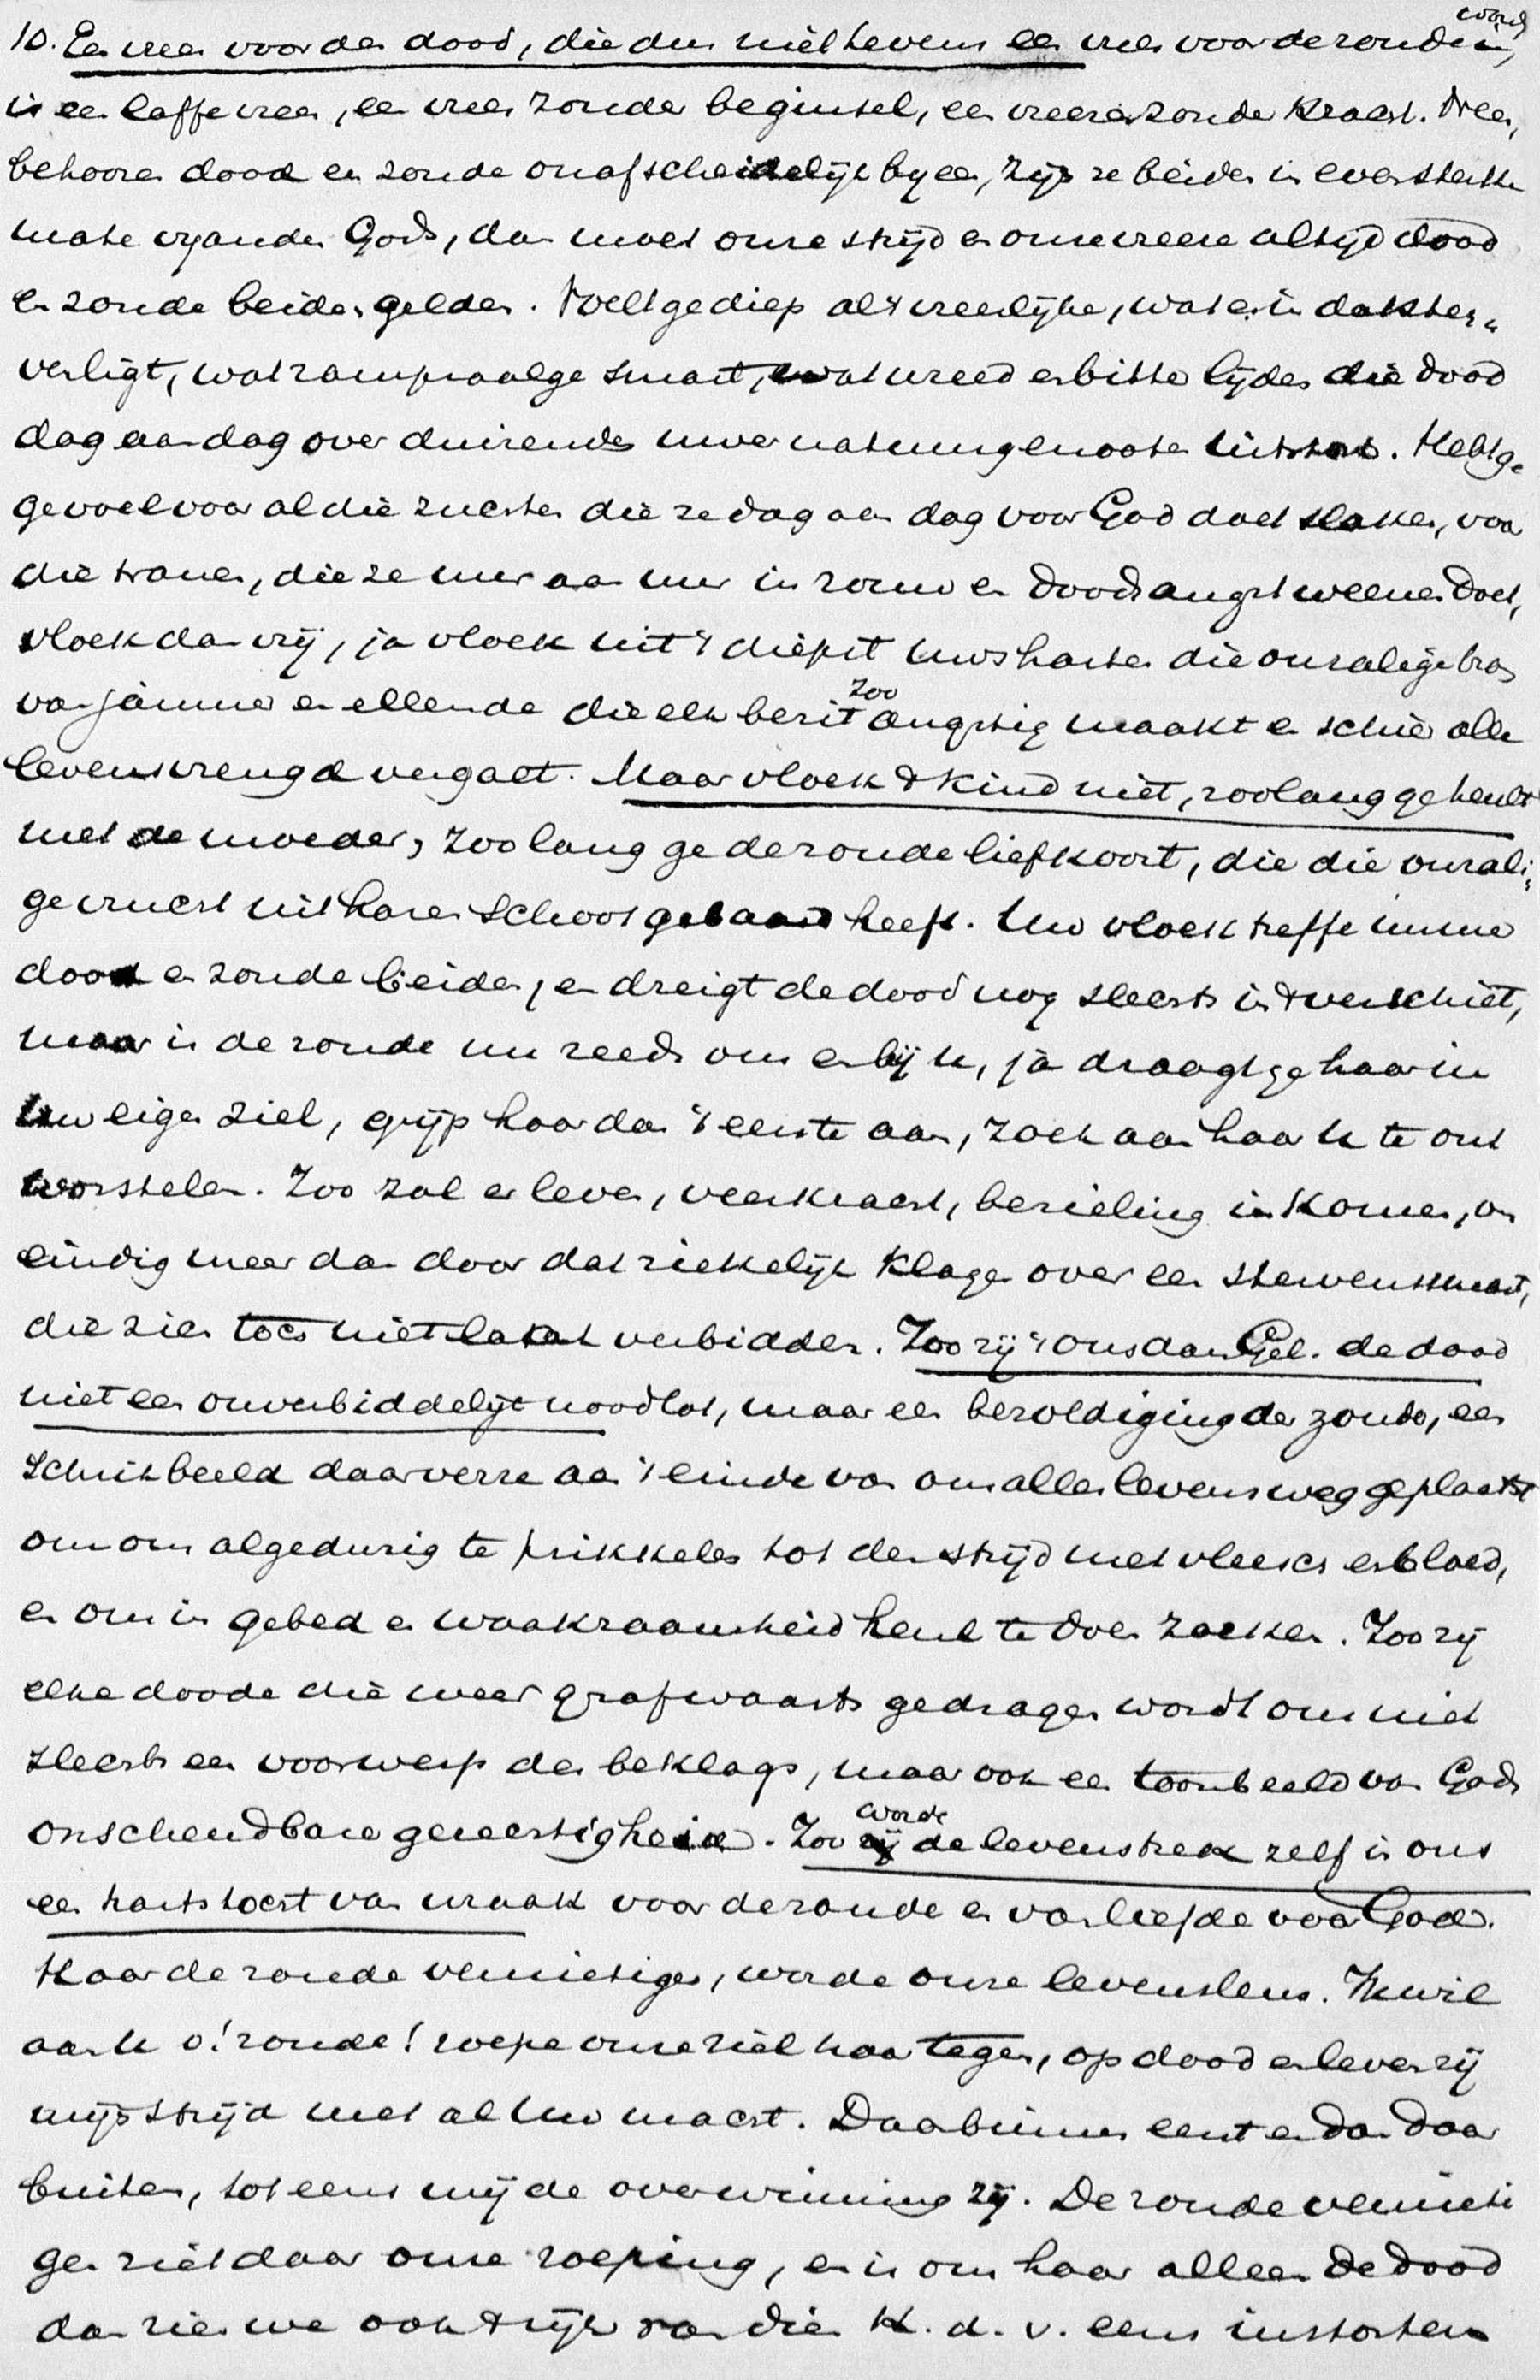 10. Een vrees voor den dood, die dan niet tevens een vrees voor de zonde in, word
is een laffe vrees, een vrees zonder beginsel, een vreeze zonder kracht. Neen,
behooren dood en zonde onafscheidelijk byeen, zijn ze beiden in even sterke
mate vyanden Gods, dan moet onze strijd en onze vreeze altijd dood
en zonde beiden gelden. Voelt ge diep al 't vreeslijke, wat er in dat ster„
ven ligt, wat rampzalige smart, wat wreed en bitter lijden die dood
dag aan dag over duizenden uwer natuurgenooten uitstort. Hebt ge
gevoel voor al die zuchten die ze dag aan dag voor God doet slaken, voor
die tranen, die ze uur aan uur in rouw en doodsangst weenen doet,
vloek dan vrij, ja vloek uit 't diepst uws harten die onzalige bron
van jammer en ellende die elk bezit zoo angstig maakt en schier alle
levensvreugd vergalt. Maar vloek 't kind niet, zoolang ge heult
met de moeder, zoolang ge de zonde liefkoost, die die onzali„
ge vrucht uit haren schoot gebaard heeft. Uw vloek treffe immer
dood en zonde beiden, en dreigt de dood nog slechts in 't verschiet,
maar is de zonde nu reeds om en bij u, ja draagt ge haar in
uw eigen ziel, grijp haar dan 't eerste aan, zoek aan haar u te ont
worstelen. Zoo zal er leven, veerkracht, bezieling in komen, on
eindig meer dan door dat ziekelijk klagen over een stervenssmart,
die zich toch niet laat verbidden. Zoo zij 't ons dan Gel. de dood
niet een onverbiddelijk noodlot, maar een bezoldiging der zonde, een
schrikbeeld daar verre aan 't einde van ons aller levensweg geplaatst
om ons algedurig te prikkelen tot den strijd met vleesch en bloed,
en ons in gebed en waakzaamheid heul te doen zoeken. Zoo zij
elke doode die weer grafwaarts gedragen wordt ons niet
slechts een voorwerp des beklags, maar ook een toonbeeld van Gods
onschendbare gerechtigheid. Zoo worde de levenstrek zelf in ons
een hartstocht van wraak voor de zonde en van liefde voor God.
Haar de zonde vernietigen, worde onze levensleus. Ik wil
aan u o! zonde! roepe onze ziel haar tegen, op dood en leven zij
mijn strijd met al uw macht. Daarbinnen eerst en dan daar
buiten, tot eens mij de overwinning zij. De zonde vernieti
gen ziet daar onze roeping, en is om haar alleen de dood
dan zien we ook 't rijk van dien K. d. v. eens instorten